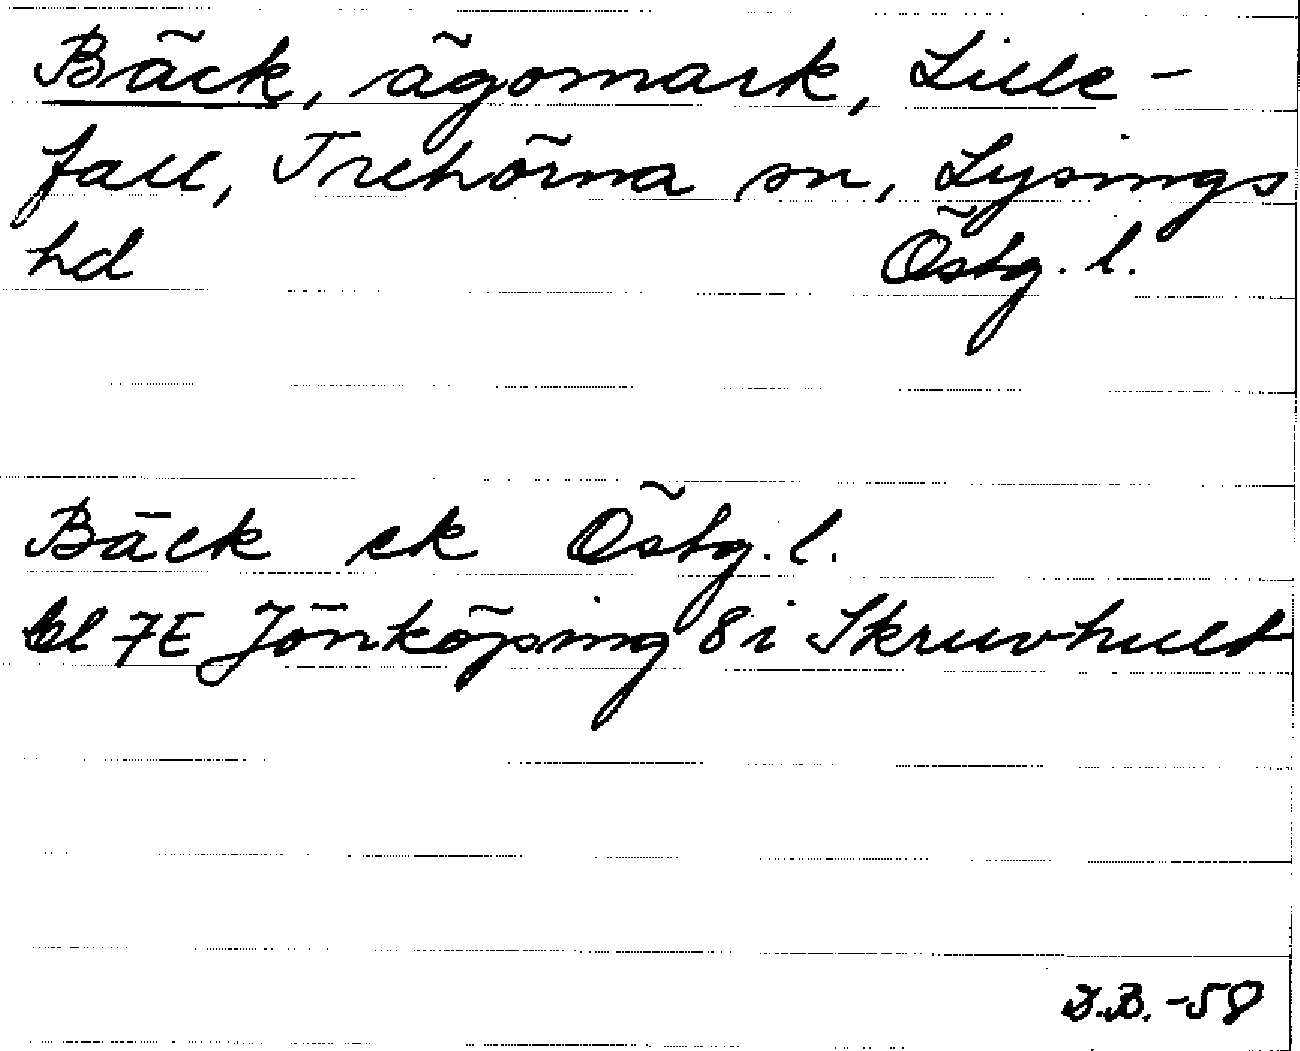 Bäck, ägomark, Lille-
fall, Trehörna sn, Lysings
hd Östg. l.
Bäck ek Östg. l.
bl 7E Jönköping 8i Skruvhult
D.B. -58